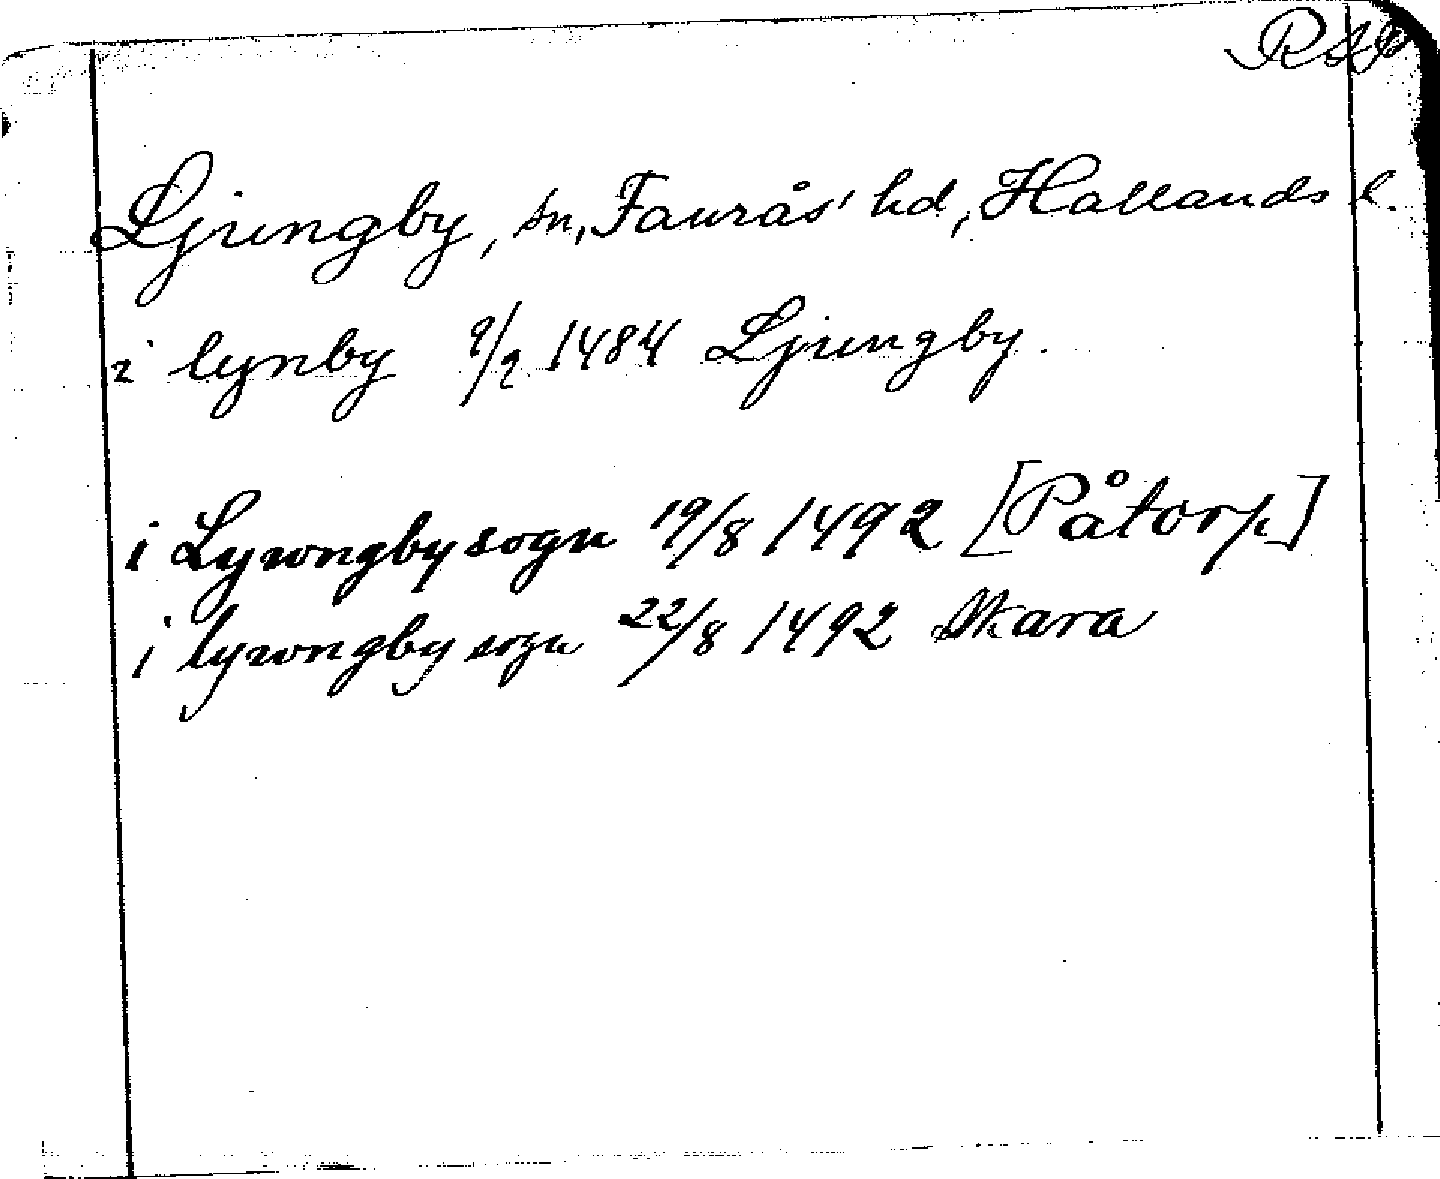 RAP
Ljungby, sn, Faurås' hd, Hallands l.
i lynby 9/2 1484 Ljungby.
i Lywngby sogn 19/8 1492 [Påtorp]
i lywngby sogn 22/8 1492 Skara